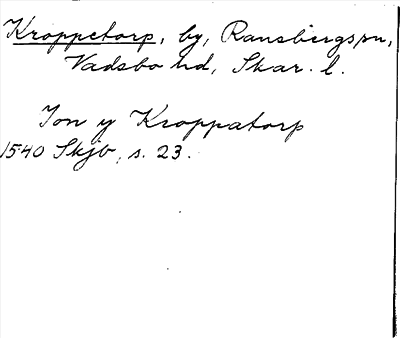 Kroppetorp, by, Ransbergs sn,
Vadsbo hd, Skar. l.
Jon y Kroppatorp
1540 Skjb, s. 23.